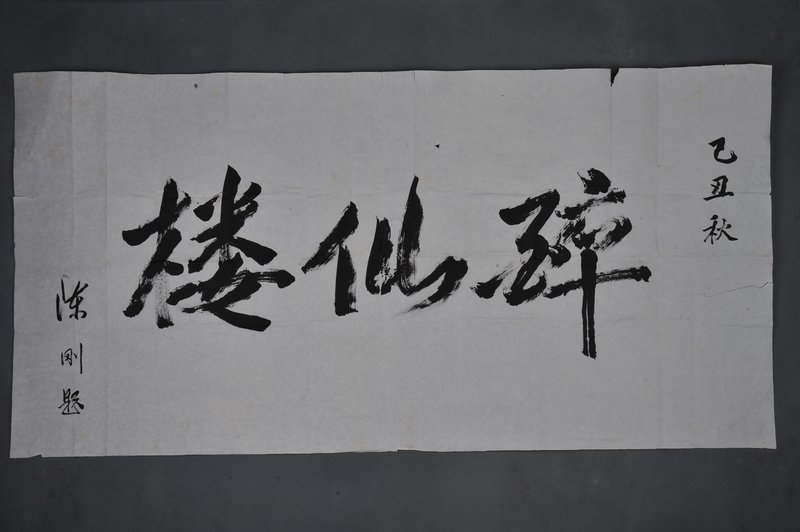 己丑秋
醉仙楼
陈刚题